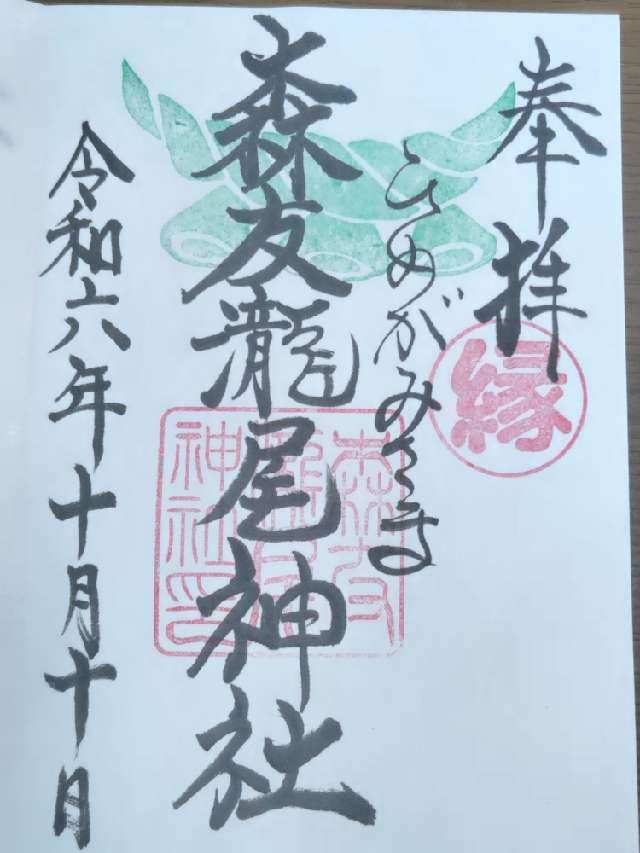 奉拝
縁
ひめがみさま
森友龍尾神社
森友
龍尾
神社印
令和六年十月十日